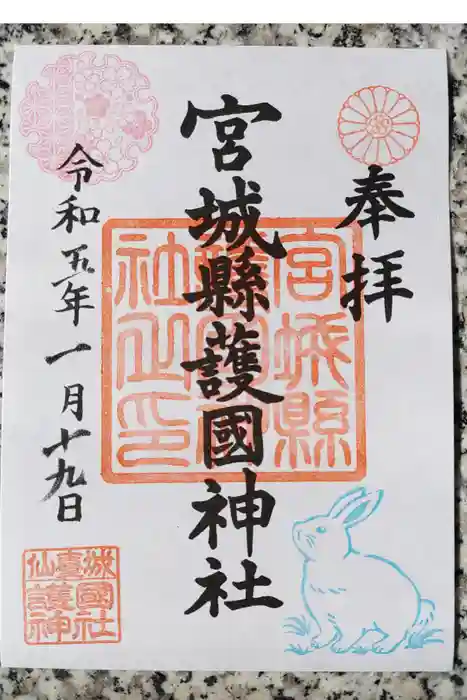 奉拝
宮城縣護國神社
宮城縣護國神社之印
令和五年一月十九日
仙臺城護國神社